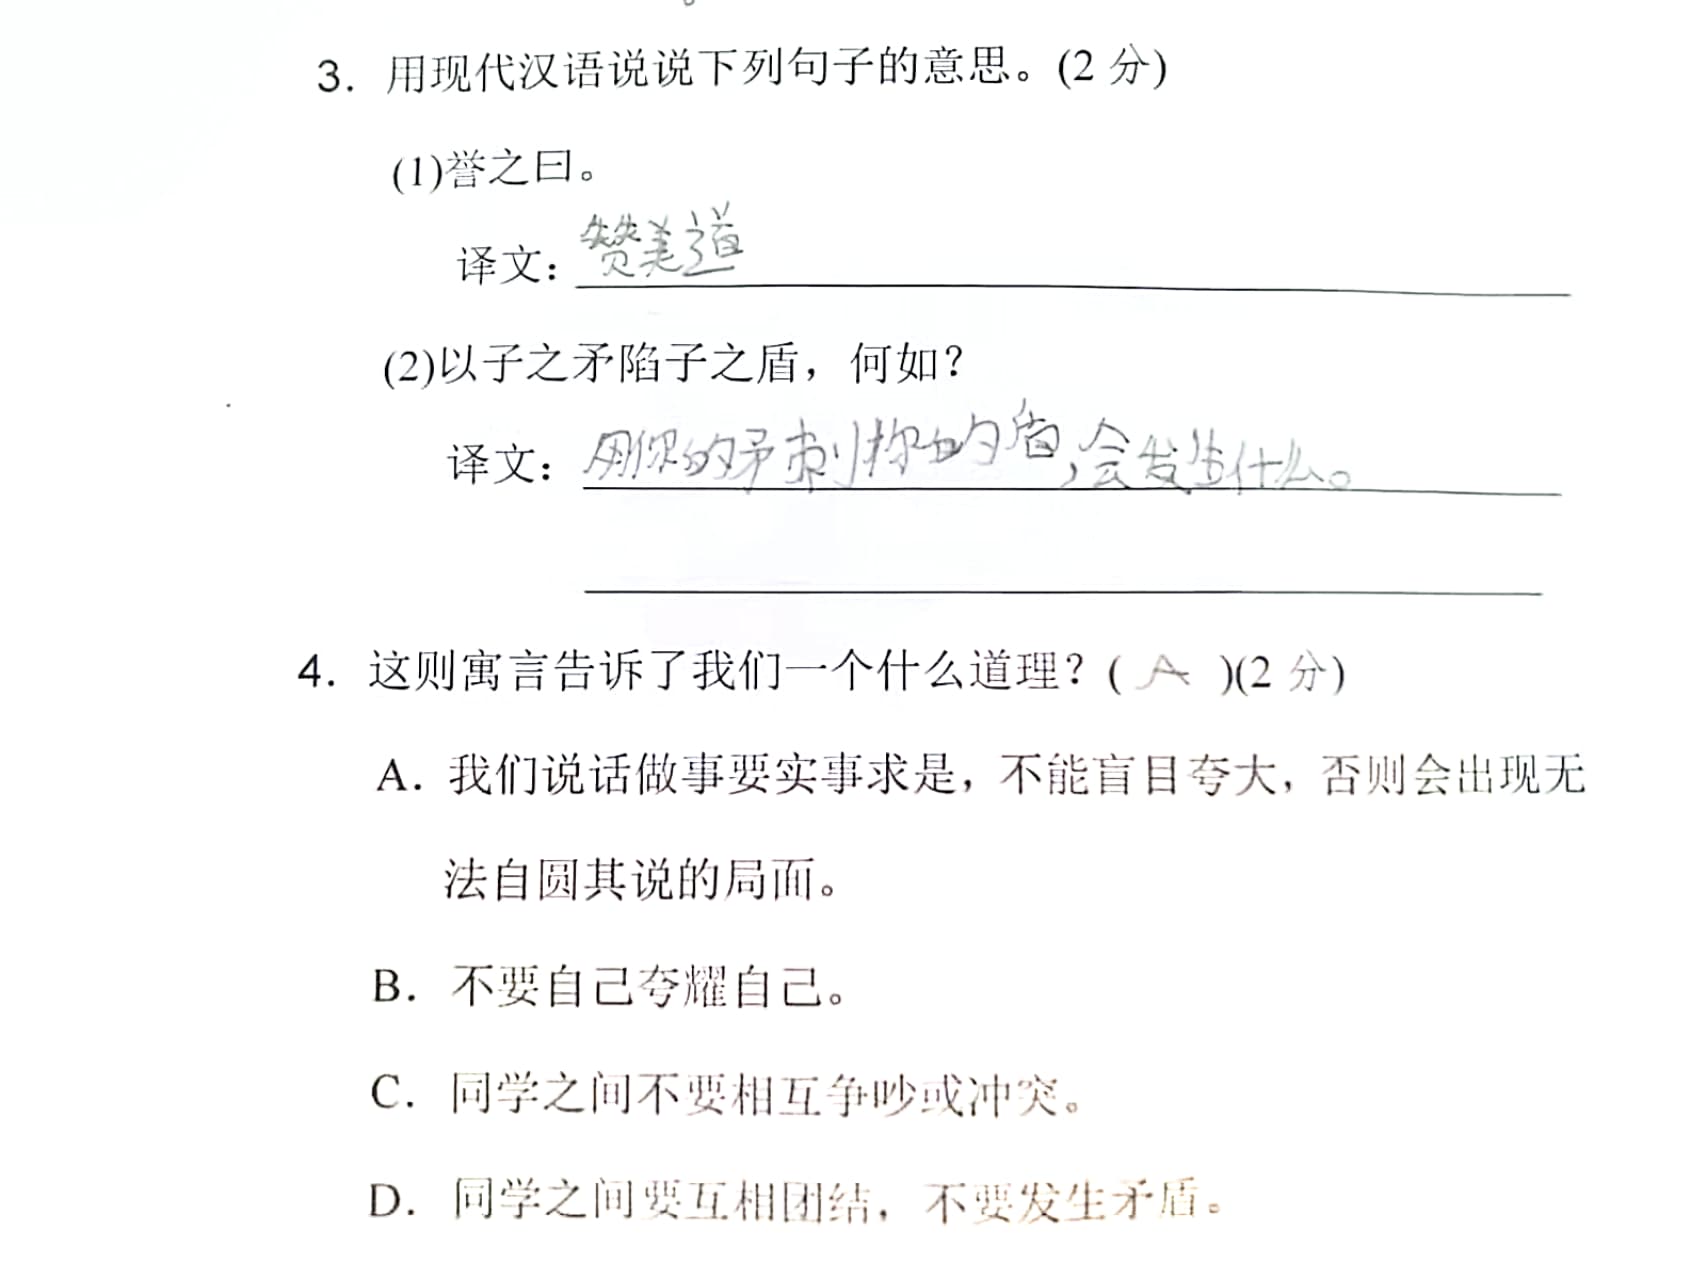 3. 用现代汉语说说下列句子的意思。(2 分)
(1)誉之曰。
译文：赞美道
(2)以子之矛陷子之盾，何如？
译文：用你的矛刺你的盾，会发生什么。
4. 这则寓言告诉了我们一个什么道理？( A )(2 分)
A. 我们说话做事要实事求是，不能盲目夸大，否则会出现无
法自圆其说的局面。
B. 不要自己夸耀自己。
C. 同学之间不要相互争吵或冲突。
D. 同学之间要互相团结，不要发生矛盾。